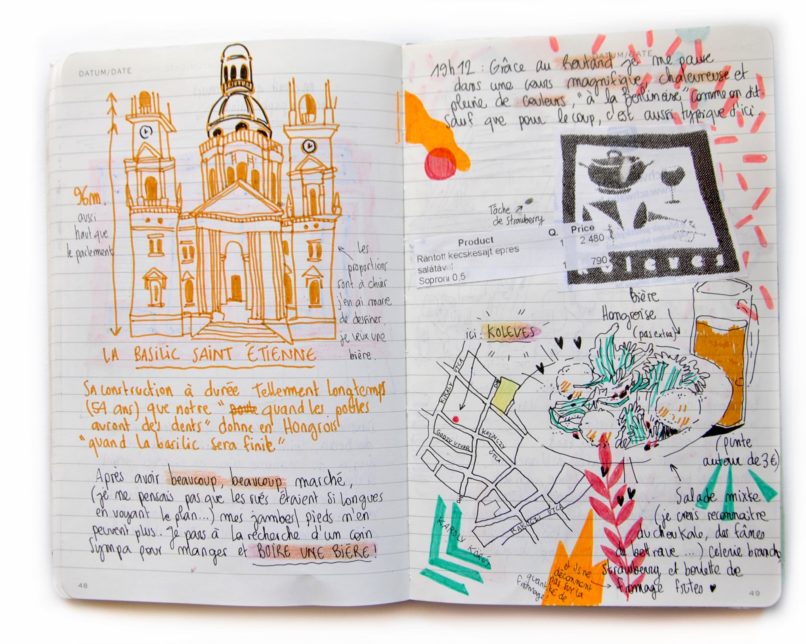 DATUM/DATE
96m.
aussi
haut que
le parlement
Les
proportions
sont à chier
j'en ai marre
de dessiner,
je veux une
bière.
LA BASILIC SAINT ÉTIENNE
Sa construction à durée tellement longtemps
(54 ans) que notre " quand les poules
auront des dents" donne en Hongrois
"quand la basilic sera finie"
Après avoir beaucoup, beaucoup marché,
(je ne pensais pas que les rues étaient si longues
en voyant le plan...) mes jambes/pieds n'en
peuvent plus. Je pars à la recherche d'un coin
sympa pour manger et BOIRE UNE BIÈRE!
48
DATUM/DATE
19h12 : Grâce au Routard je me pause
dans une cours magnifique, chaleureuse et
pleine de couleurs, "à la Berlinoise" comme on dit
sauf que pour le coup, c'est aussi typique d'ici
Tâche
de strawberry
Product Q. Price
Rántott kecskesajt epres 1 2 480
salátáv
Soproni 0,5 1 790
köleves
Bière
Hongroise
(pas extra)
ici: KOLEVES
KIRALY
UTCA
KAZINCZY
UTCA
KAROLY
(pinte
autour de 3€)
Salade mixte
(je crois reconnaitre
du chou kale, des fânes
de betrave ...) celerie branche
strawberry et boulette de
fromage frites ♥
et ils ne
déconnent
pas sur la
quantité de
fromage!
49